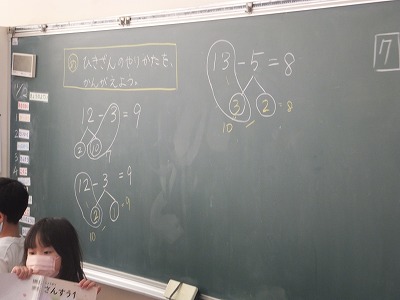 め ひきざんのやりかたを、
かんがえよう。
12-3=9
2 10
7
12-3=9
2 1
10 9
13-5=8
3 2 =8
10
7
さんすう1